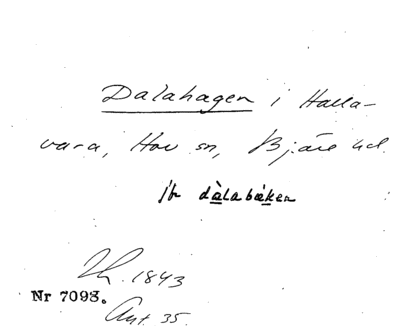 Dalahagen i Halla-
vara, Hov sn, Bjäre hd.
jfr dàlabäken
1843
Nr 7093.
Ant. 35.